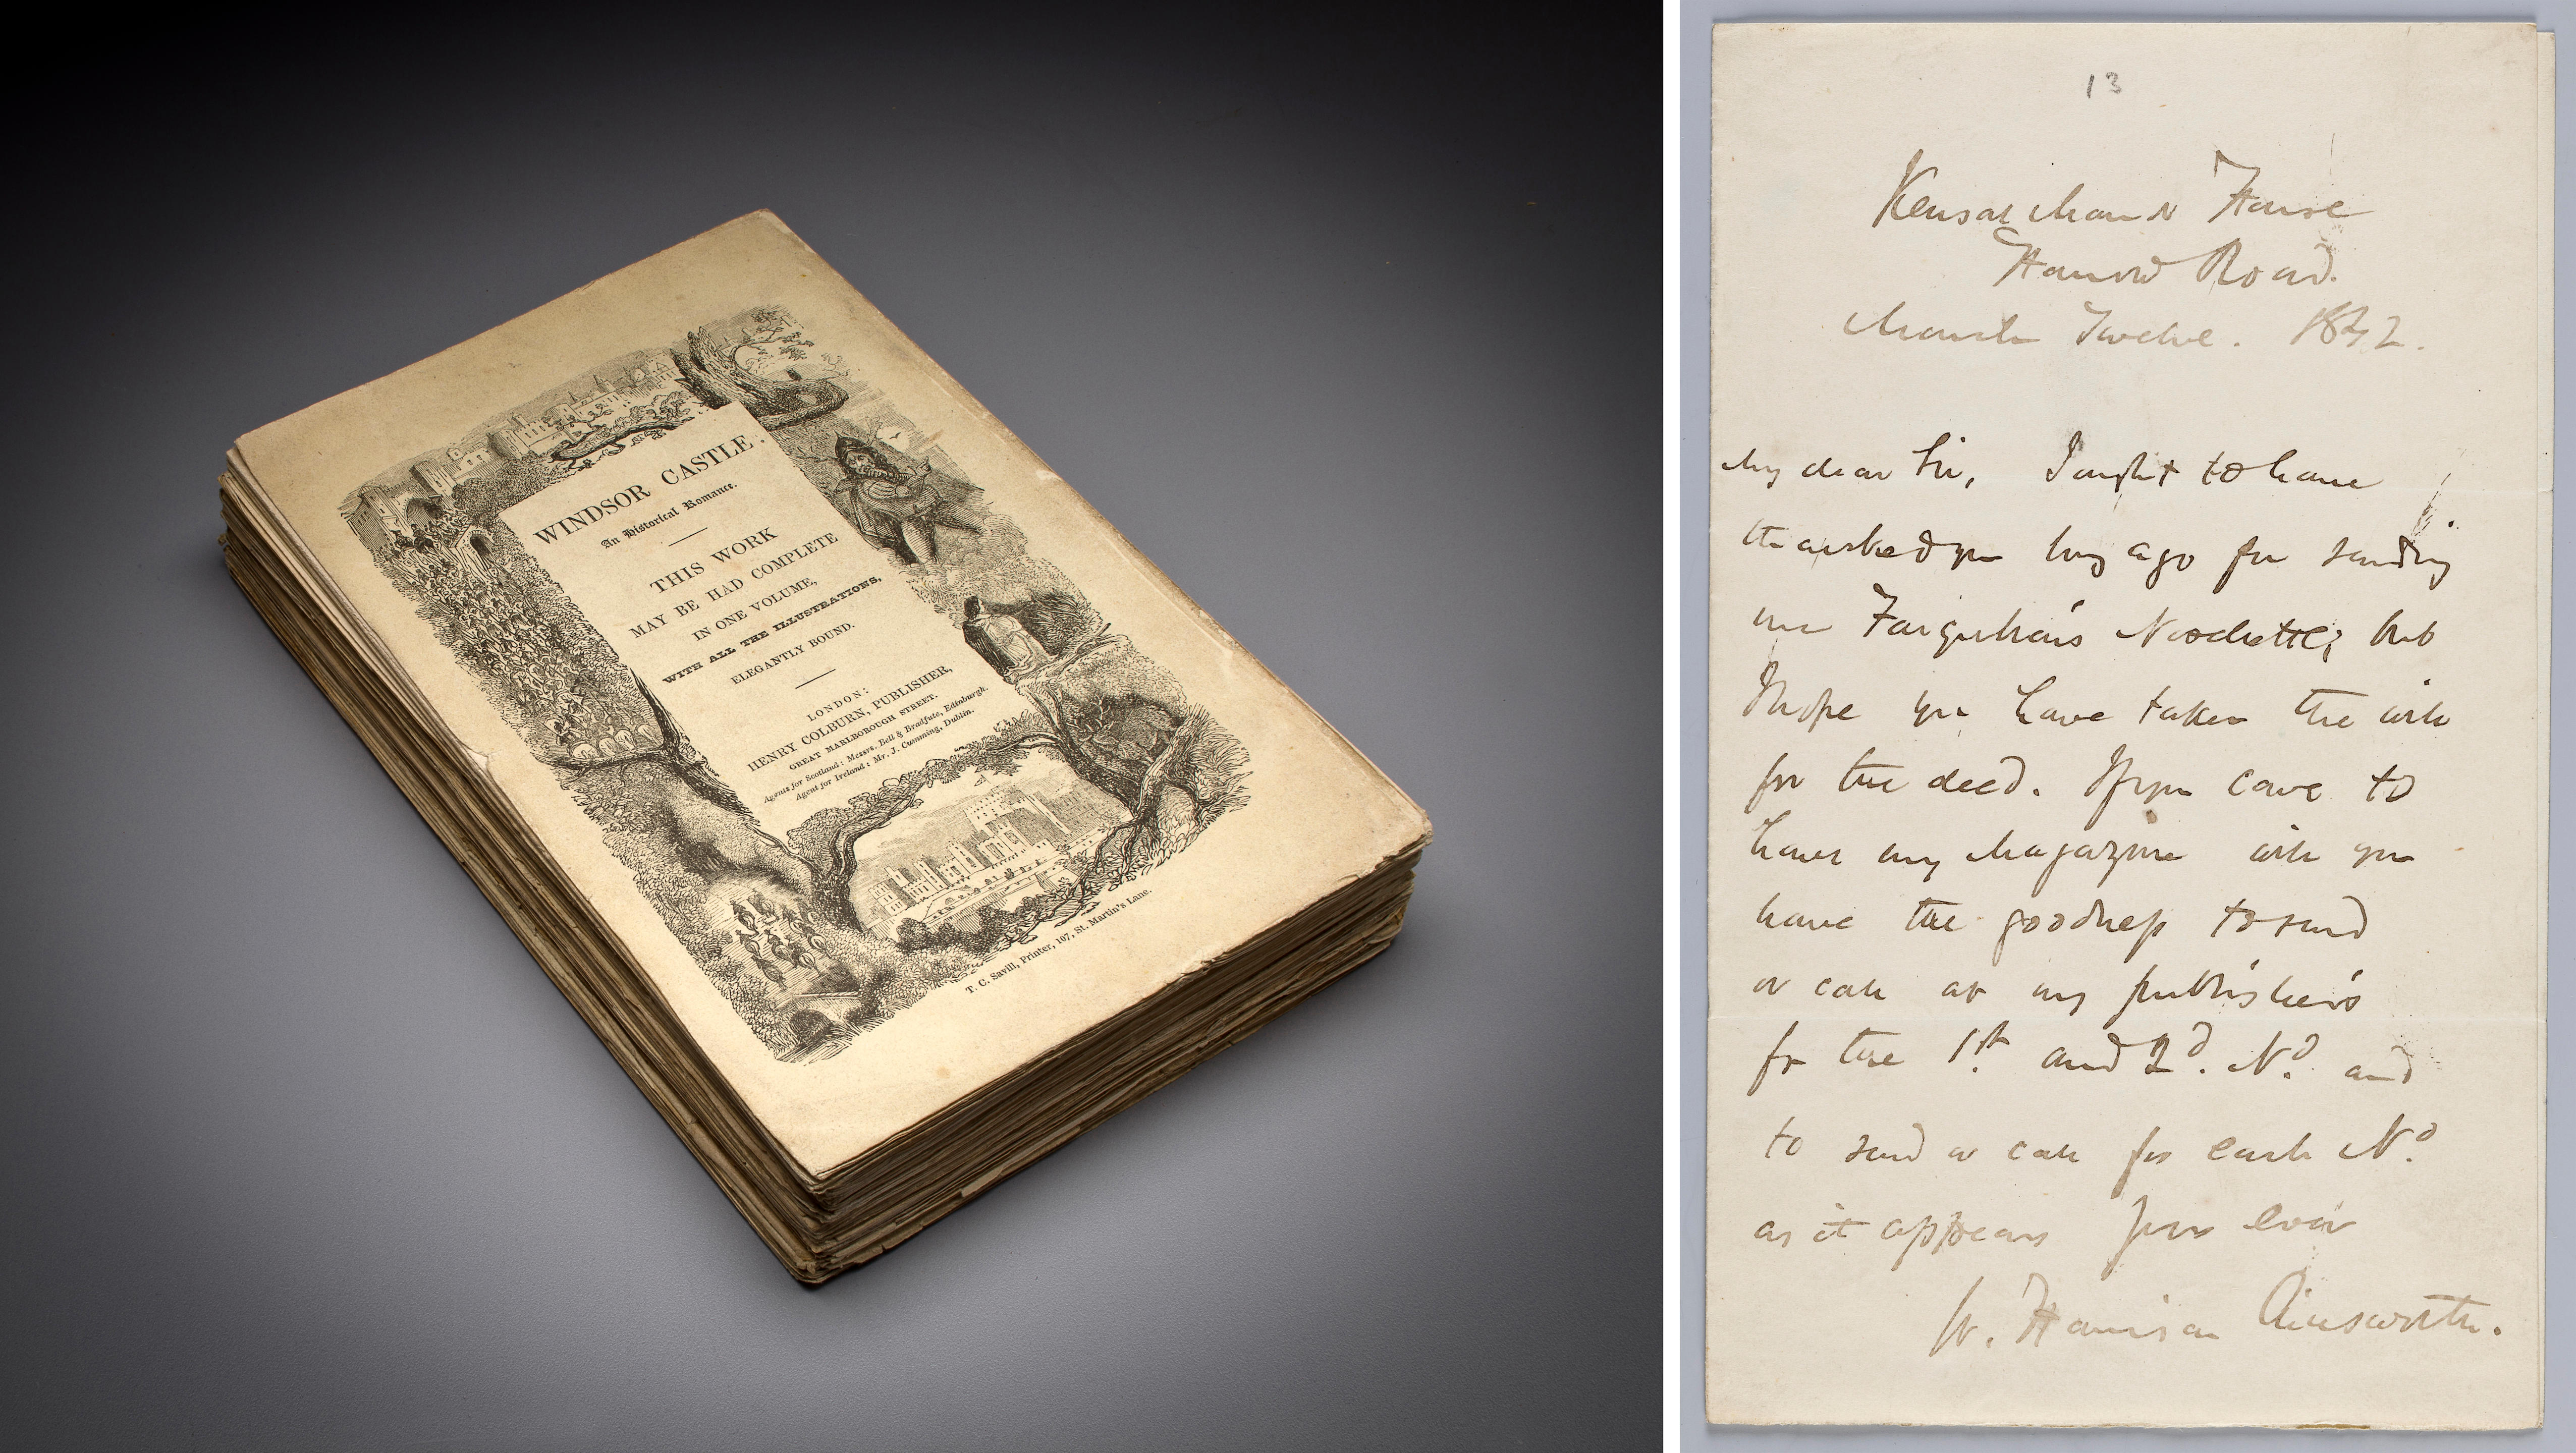 WINDSOR CASTLE.
An Historical Romance.
THIS WORK
MAY BE HAD COMPLETE
IN ONE VOLUME,
WITH ALL THE ILLUSTRATIONS,
ELEGANTLY BOUND.
LONDON:
HENRY COLBURN, PUBLISHER,
GREAT MARLBOROUGH STREET.
Agents for Scotland: Messrs. Bell & Bradfute, Edinburgh.
Agent for Ireland: Mr. J. Cumming, Dublin.
T. C. Savill, Printer, 107, St. Martin's Lane.
13
Kensal Manor House
Harrow Road.
March Twelve. 1842.
My dear Sir, I ought to have
thanked you long ago for sending
me Farquhar's Novelette; but
I hope you have taken the will
for the deed. If you care to
have my Magazine will you
have the goodness to send
or call at my publisher's
for the 1st. and 2d. No. and
to send or call for each No.
as it appears Yours ever
W. Harrison Ainsworth.